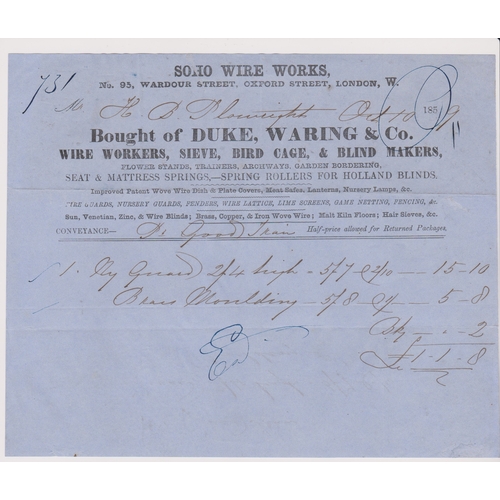 731
SOHO WIRE WORKS,
No. 95, WARDOUR STREET, OXFORD STREET, LONDON, W.
M H D Plowright Oct 10 1859
Bought of DUKE, WARING & Co.
WIRE WORKERS, SIEVE, BIRD CAGE, & BLIND MAKERS,
FLOWER STANDS, TRAINERS, ARCHWAYS, GARDEN BORDERING,
SEAT & MATTRESS SPRINGS,—SPRING ROLLERS FOR HOLLAND BLINDS.
Improved Patent Wove Wire Dish & Plate Covers, Meat Safes, Lanterns, Nursery Lamps, &c.
WIRE GUARDS, NURSERY GUARDS, FENDERS, WIRE LATTICE, LIME SCREENS, GAME NETTING, FENCING, &c.
Sun, Venetian, Zinc, & Wire Blinds; Brass, Copper, & Iron Wove Wire; Malt Kiln Floors; Hair Sieves, &c.
CONVEYANCE— Good Train Half-price allowed for Returned Packages.
1 Ny Guard 2/4 high 5/7 @ 2/10 15-10
Brass Moulding 5/8 @ 1/- 5-8
- . - 2
£1-1-8